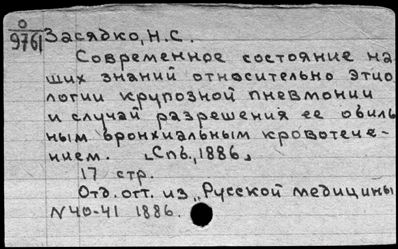 О
9761 Засядко, Н.С.
Современное состояние на
ших знаний относительно этио
логии крупозной пневмонии
и случай разрешения ее обиль
ным бронхиальным кровотече-
нием. [Спб., 1886]
17 стр.
Отд. отт. из „Русской медицины
N40-41 1886.